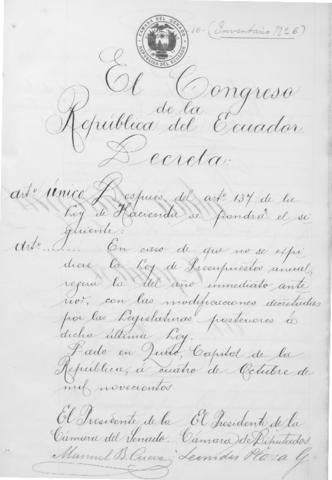 CAMARA DEL SENADO
REPUBLICA DEL ECUADOR
10- (Inventario Nº 6)
El Congreso
de la
República del Ecuador
Decreta:
art.º único Después del art.º 137 de la
Ley de Hacienda se pondrá el si
guiente:
art.º...... En caso de que no se expi
diere la Ley de Presupuestos anual,
regirá la del año inmediato ante
rior, con las modificaciones decretadas
por las Legislaturas posteriores á
dicha última Ley.
Dado en Quito, Capital de la
República, á cuatro de Octubre de
mil novecientos
El Presidente de la El Presidente de la
Cámara del Senado. Cámara de Diputados
Manuel B. Cueva Leonidas Plaza G.